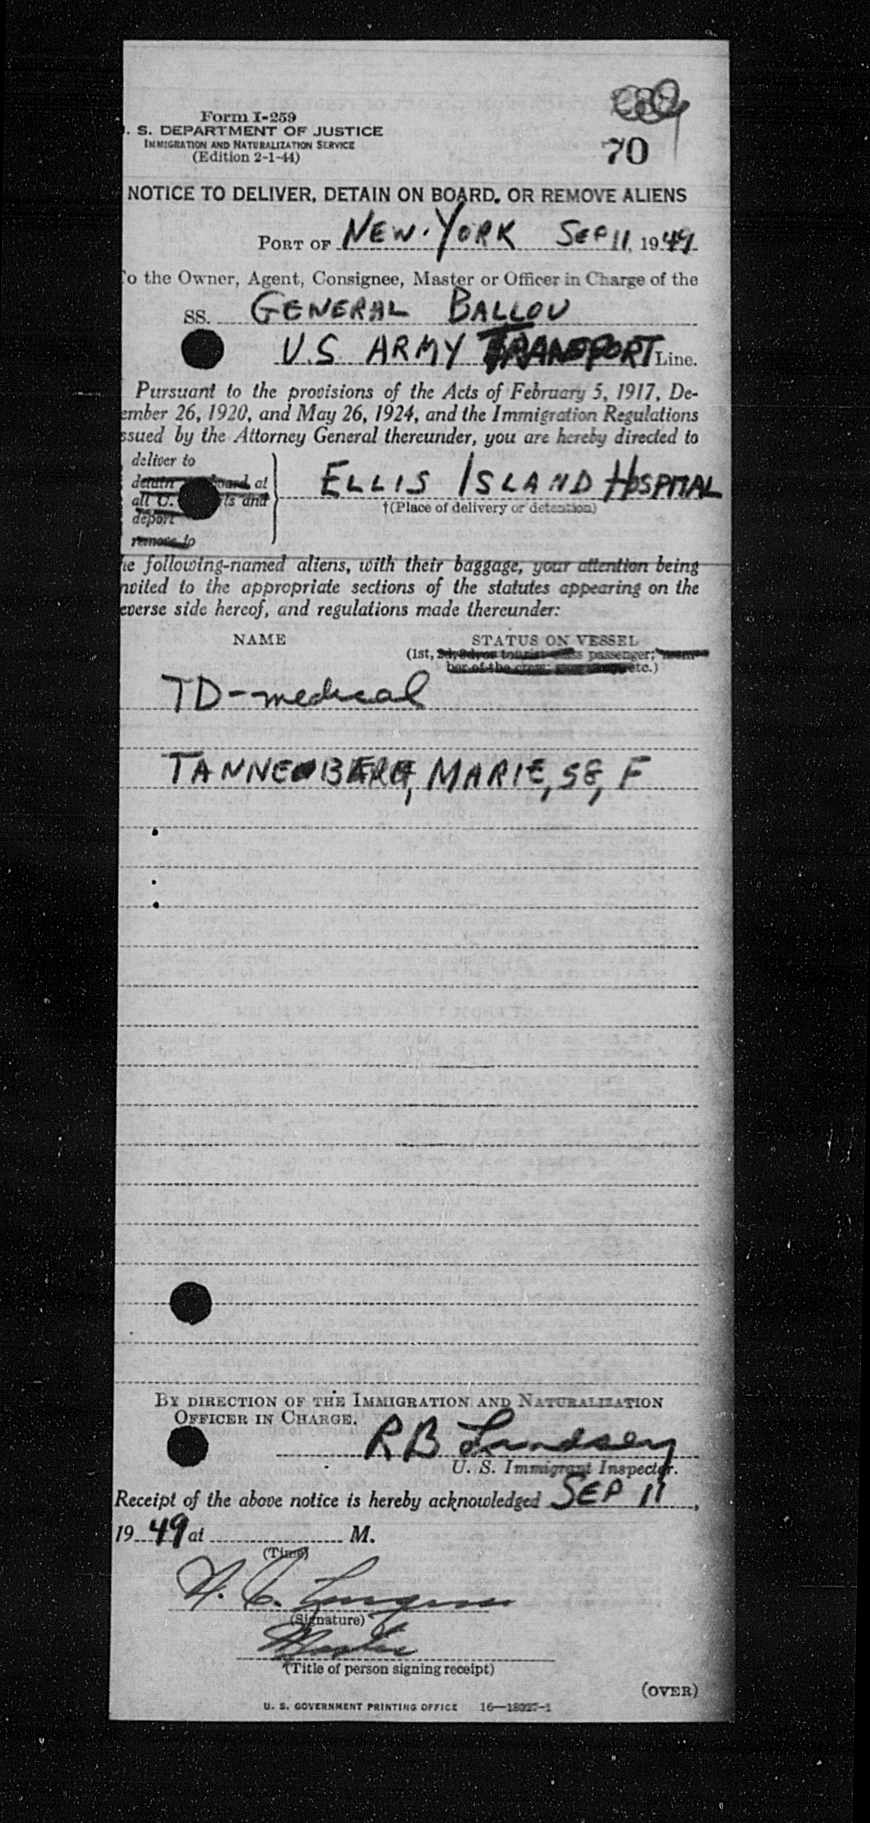 Form I-259
. S. DEPARTMENT OF JUSTICE
IMMIGRATION AND NATURALIZATION SERVICE
(Edition 2-1-44)
70
NOTICE TO DELIVER, DETAIN ON BOARD, OR REMOVE ALIENS
PORT OF NEW YORK SEP 11, 1949
o the Owner, Agent, Consignee, Master or Officer in Charge of the
SS. GENERAL BALLOU
U.S ARMY TRANSPORT Line.
Pursuant to the provisions of the Acts of February 5, 1917, De-
ember 26, 1920, and May 26, 1924, and the Immigration Regulations
ssued by the Attorney General thereunder, you are hereby directed to
deliver to
detain on board at
all U. ts and
deport
remove to
ELLIS ISLAND HOSPITAL
†(Place of delivery or detention)
he following-named aliens, with their baggage, your attention being
nvited to the appropriate sections of the statutes appearing on the
everse side hereof, and regulations made thereunder:
NAME STATUS ON VESSEL
(1st, 2d, 3d, or tourist class passenger; mem-
ber of the crew; etc.)
TD-medical
TANNEBERG, MARIE, 58, F
BY DIRECTION OF THE IMMIGRATION AND NATURALIZATION
OFFICER IN CHARGE.
RB Lindsey
U. S. Immigrant Inspector.
Receipt of the above notice is hereby acknowledged SEP 11,
1949 at M.
(Time)
(Signature)
Master
(Title of person signing receipt)
(OVER)
U. S. GOVERNMENT PRINTING OFFICE 16—18027-1